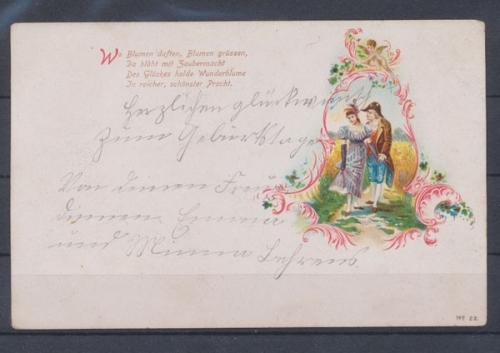 Wo Blumen duften, Blumen grüssen,
Da blüht mit Zaubermacht
Des Glückes holde Wunderblume
In reicher, schönster Pracht.
Herzlichen glückwunsch
Zum Geburtstage
Von deinen
Emma
und Minna Behrens